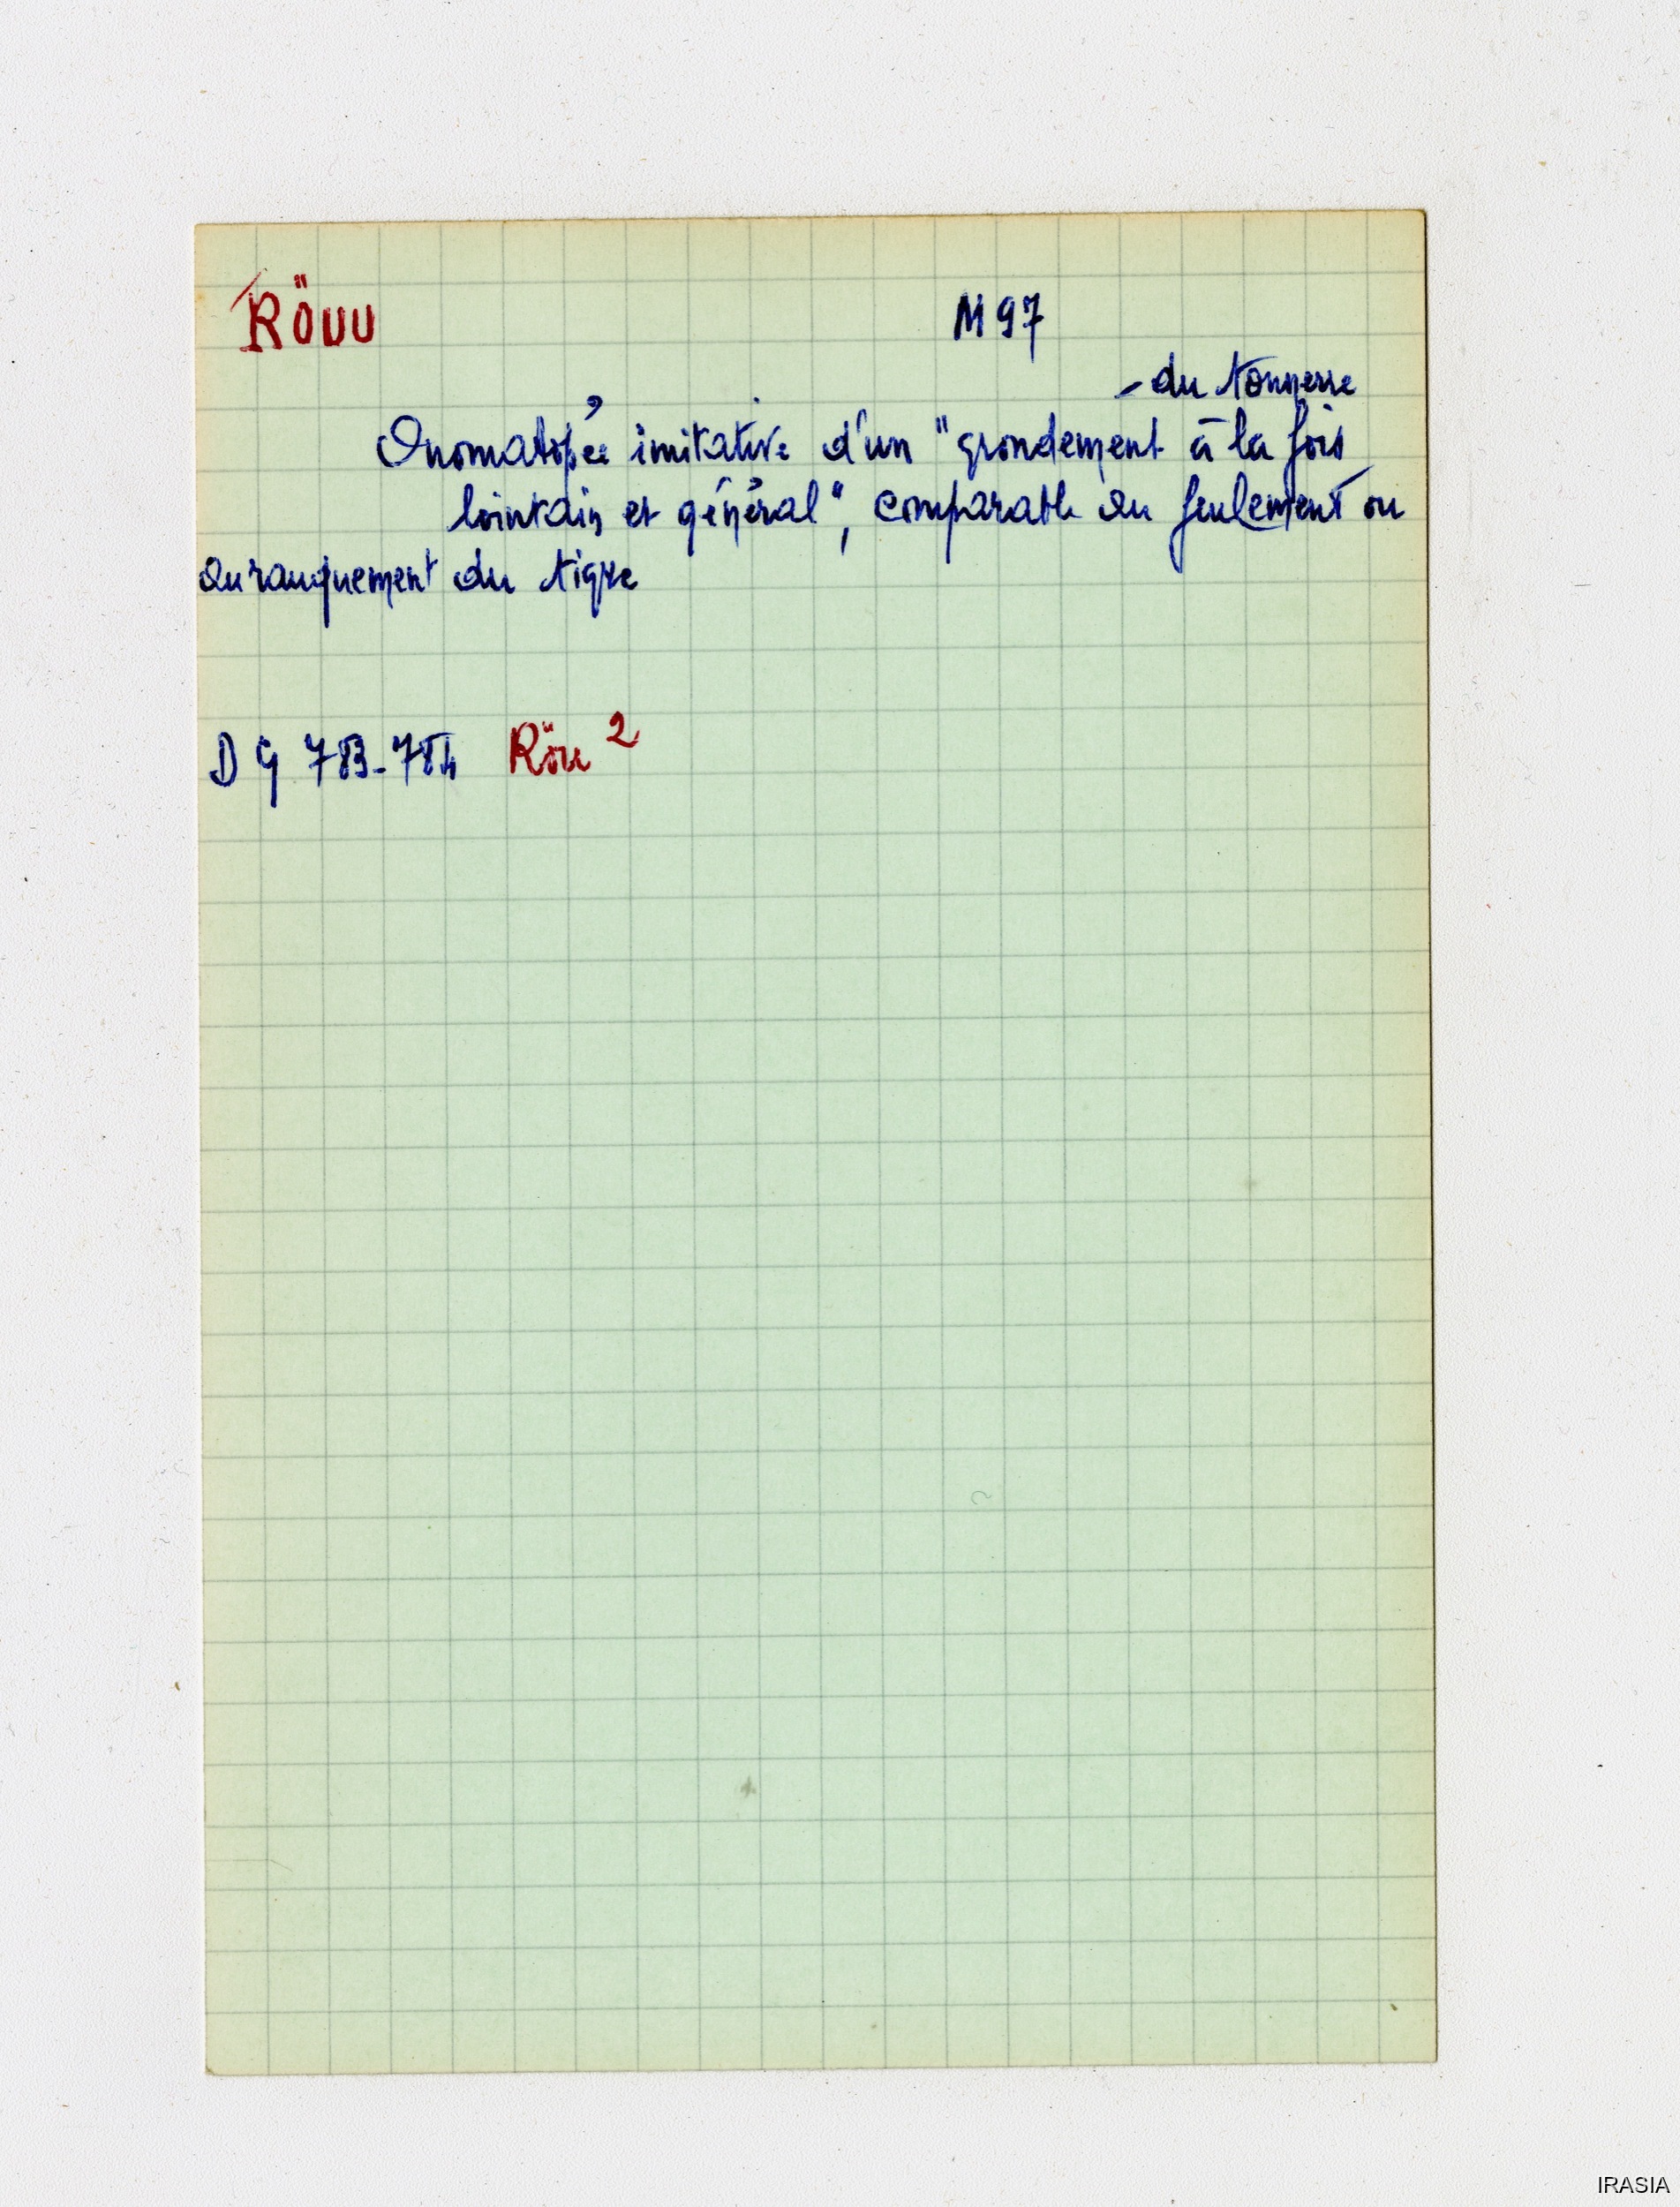 RÖUU M 97
- du tonnerre
Onomatopée imitative d'un "grondement à la fois
lointain et général", comparable au feulement ou
au rauquement du tigre
D G 783-784 Röu 2
IRASIA